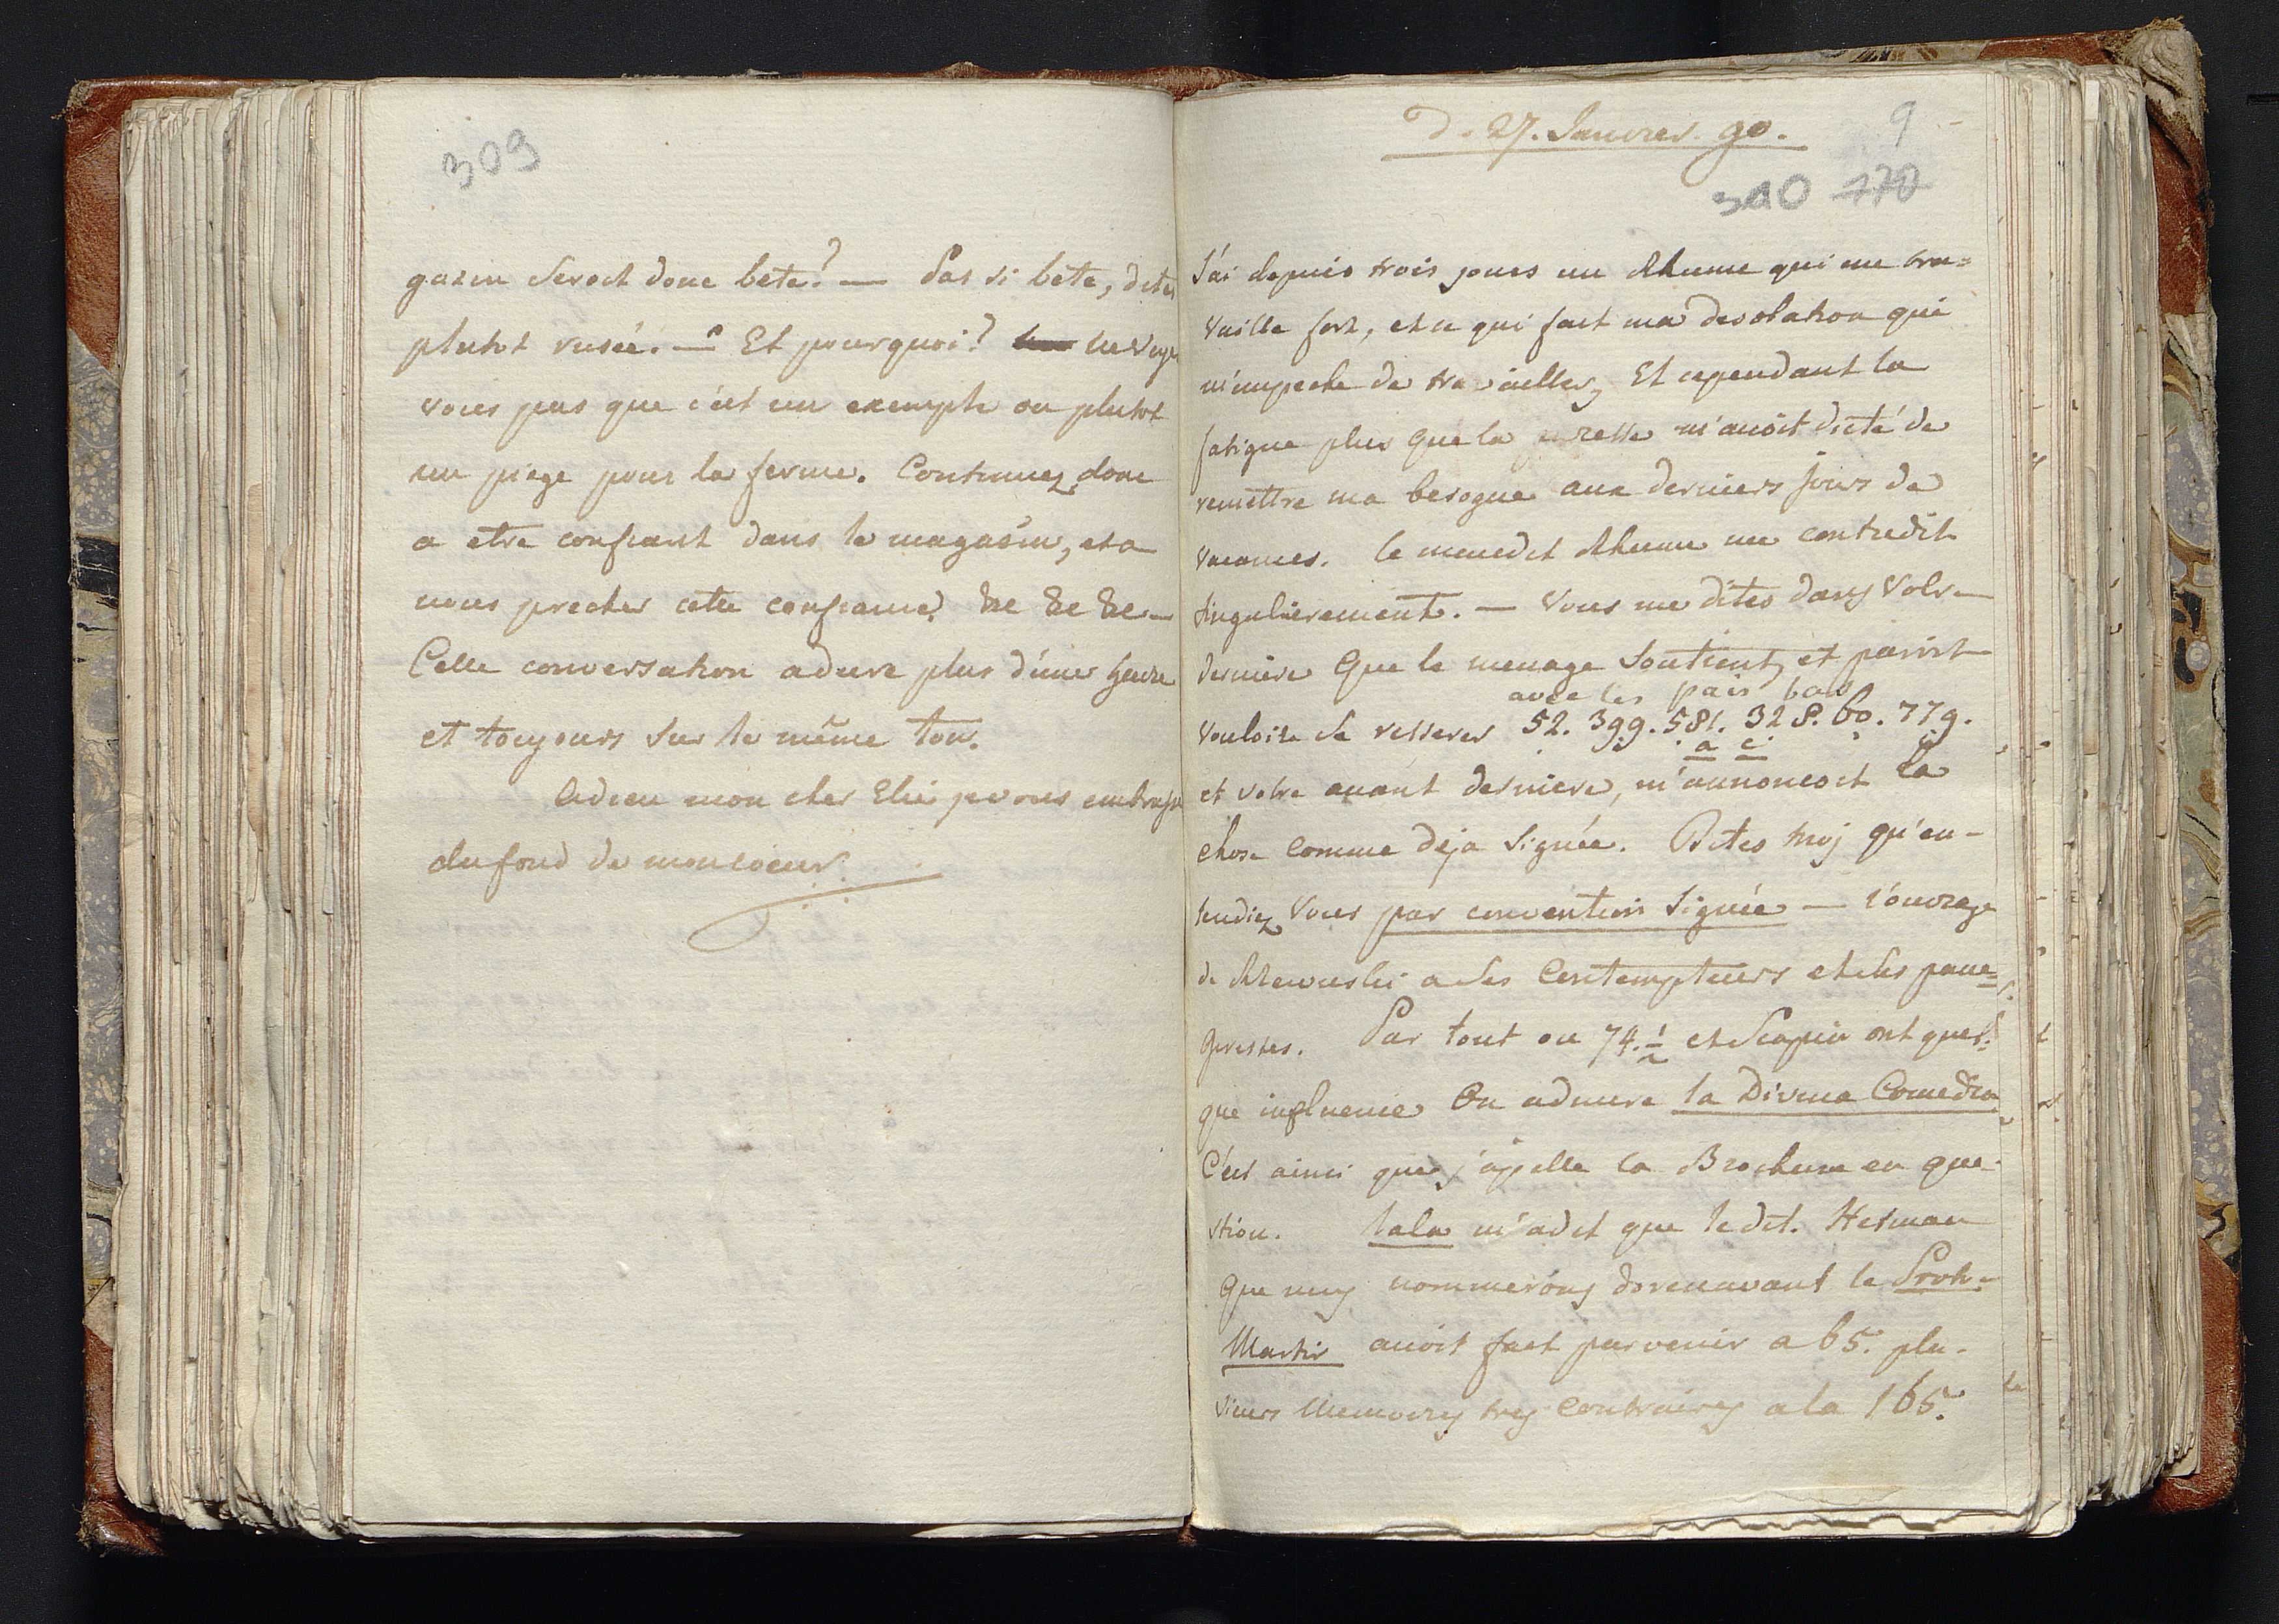 309
gazin seroit donc bete? — Pas si bete, dites
plutot rusée. — Et pourquoi? ne voyez
vous pas que c'est un exemple ou plutot
un piege pour la ferme. Continuez donc
a etre confiant dans le magasin, et a
nous precher cette confiance? &c &c &c —
Cette conversation a duré plus d'une heure
et toujours sur le même ton.
Adieu mon cher Elie je vous embrasse
du fond de mon coeur.
D. 27. Janvier 90. 9
310 170
J'ai depuis trois jours un Rhume qui me tra=
vaille fort, et ce qui fait ma desolation qui
m'empeche de travailler, Et cependant la
fatigue plus que la paresse m'avoit dicté de
remettre ma besogne aux derniers jours de
vacances. Ce maudit Rhume me contredit
singulierement. — Vous me dites dans Votre
derniere Que le menage soutient, et paroit
avec les pais bas
vouloir se resserer 52. 399. 581. 328. 60. 779.
a c
et votre avant derniere, m'annoncoit la
chose comme deja signée. Dites moj qu'en-
tendiez vous par convention signée — L'ouvrage
de Rzewuski a ses Contempteurs et ses pane=
giristes. Par tout ou 74. 1/2 et Scapin ont quel=
que influence On admire la Divina Comedia
C'est ainsi que j'appelle la Brochure en que-
stion. Lala m'a dit que le dit. Hetman
Que nous nommerons dorenavant le Proto-
Martir avoit fait parvenir a 65. plu-
sieurs Memoires tres contraires a la 165.